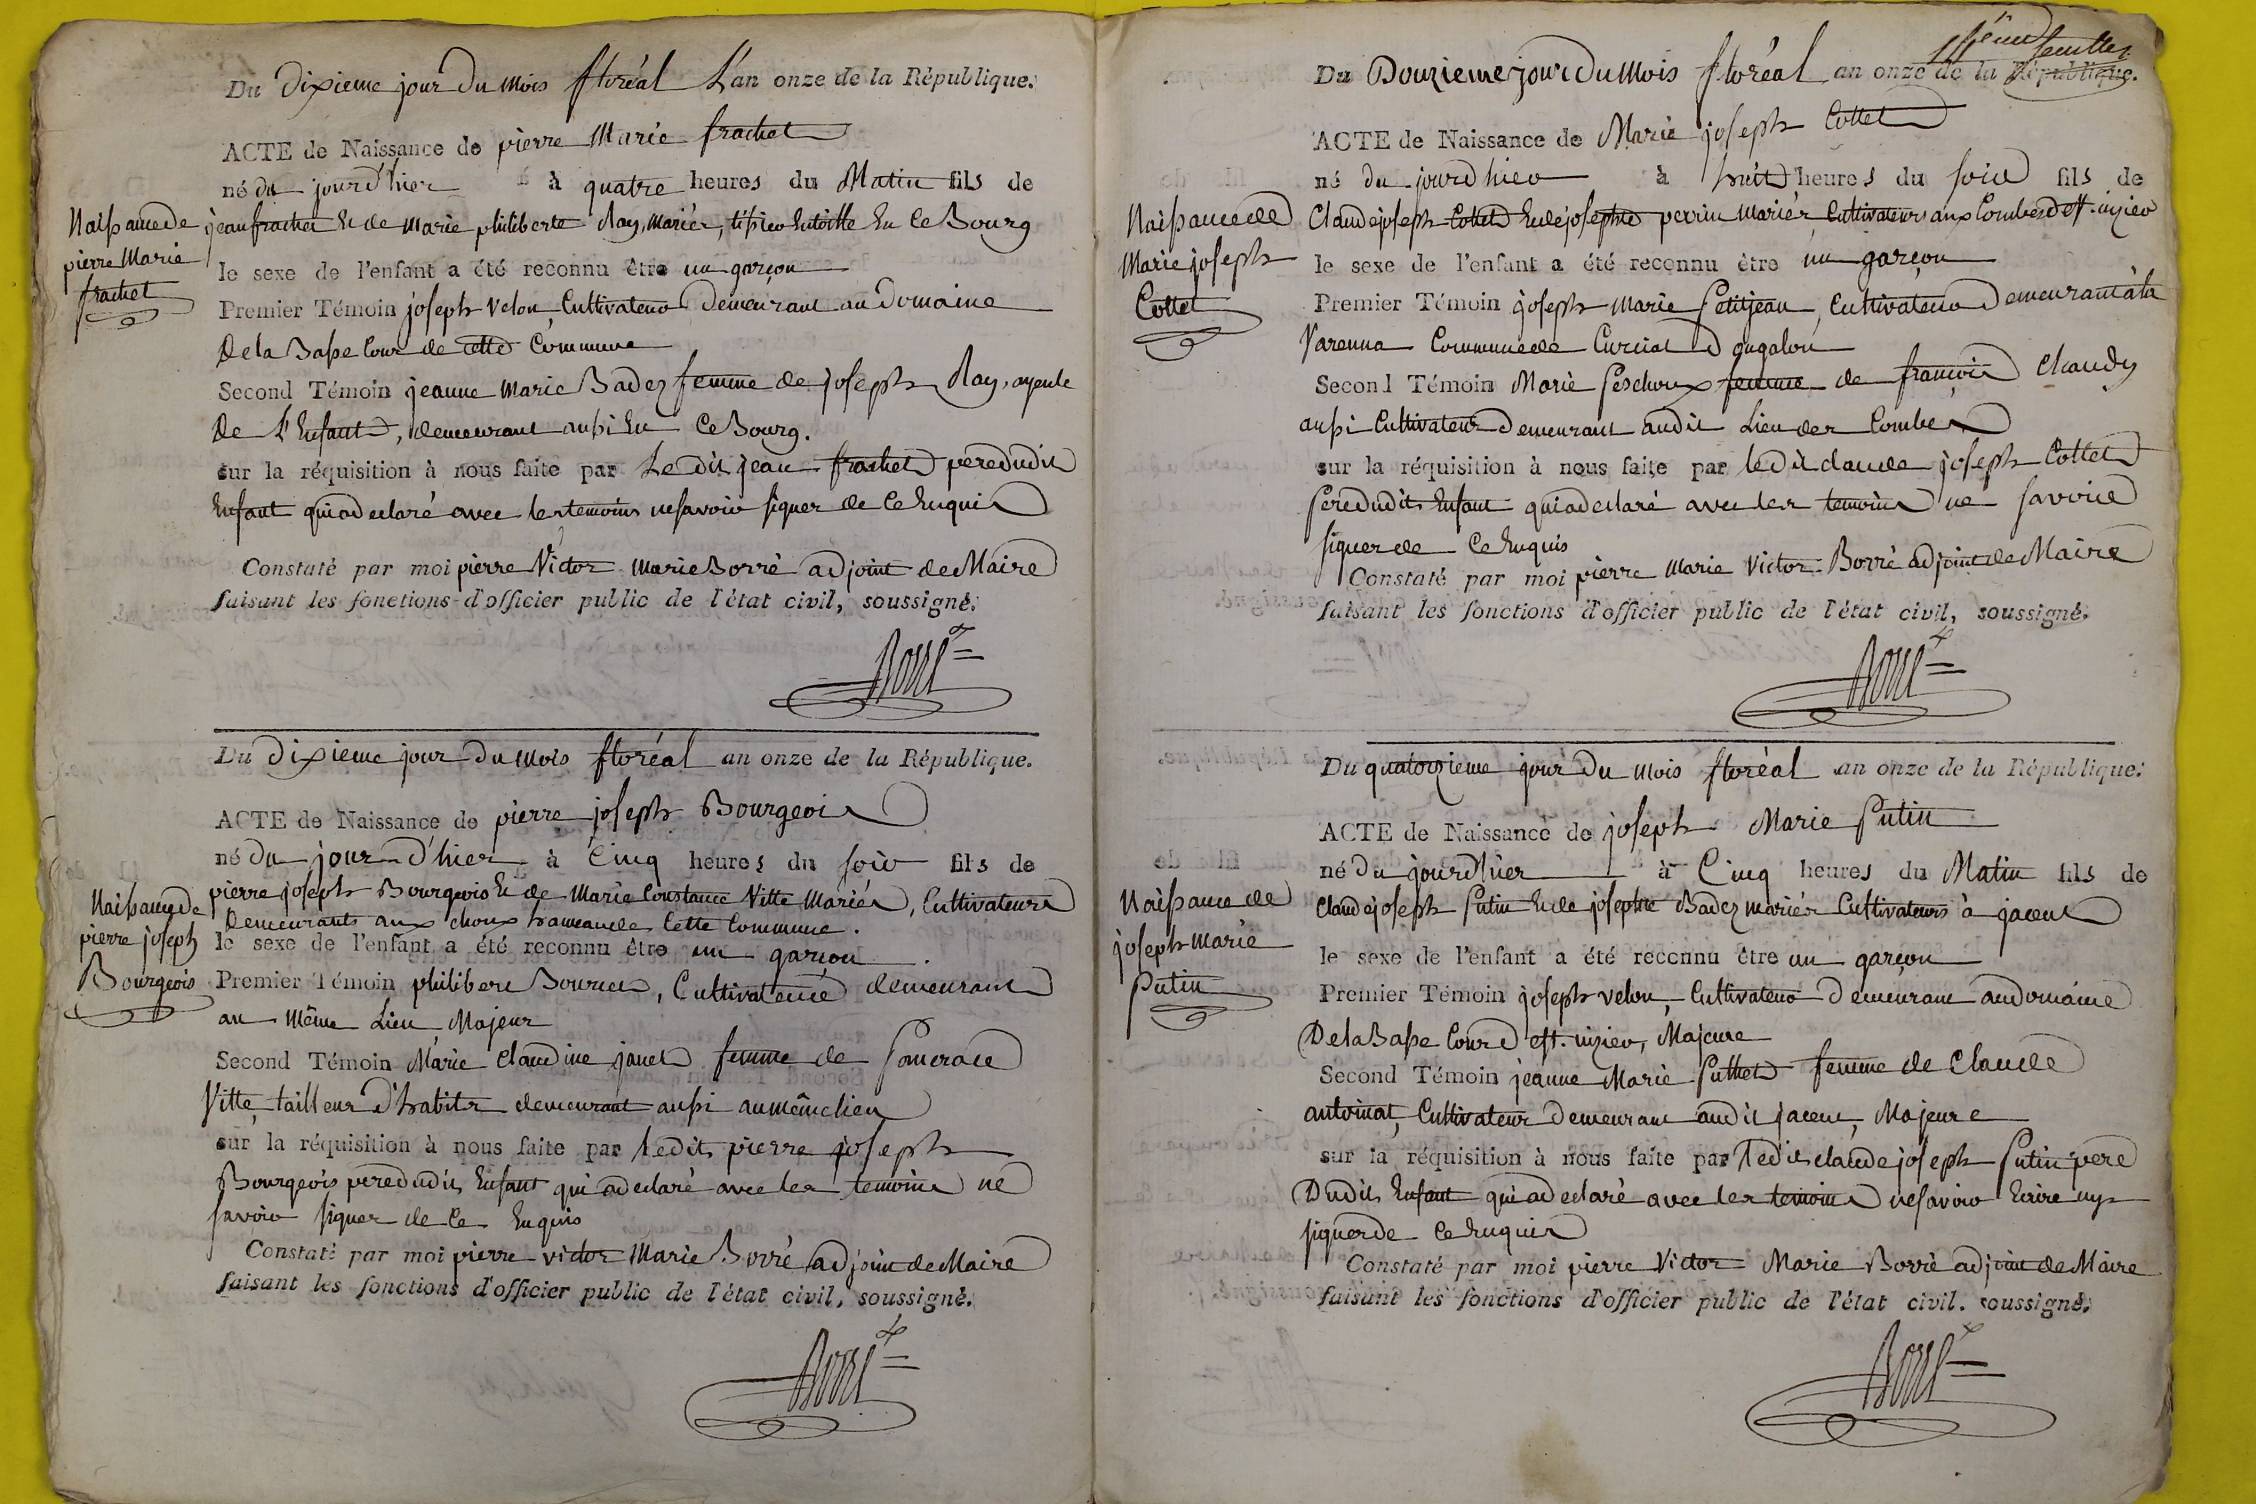 Du dixieme jour Du mois floréal L'an onze de la République.
ACTE de Naissance de pierre Marie frachet
né du jourd'hier à quatre heures du Matin fils de
Naissance de
pierre Marie
frachet
jean frachet Et de Marie philiberte Ray, mariés, tissier Entoille En ce Bourg
le sexe de l'enfant a été reconnu être un garçon
Premier Témoin joseph Velon, Cultivateur Demeurant au Domaine
De la Basse Cour de cette Commune
Second Témoin jeanne Marie Badez femme de joseph Ray, ayeule
De L'Enfant, demeurant aussi En Ce Bourg.
sur la réquisition à nous faite par Le dit jean frachet pere dudit
Enfant qui a declaré avec les temoins ne savoir signer de ce Enquis
Constaté par moi pierre Victor marie Borré adjoint de Maire
faisant les fonctions d'officier public de l'état civil, soussigné.
Borré
Du dixieme jour Du mois floréal an onze de la République.
ACTE de Naissance de pierre joseph Bourgeois
né du jour d'hier à Cinq heures du soir fils de
Naissance de
pierre joseph
Bourgeois
pierre joseph Bourgeois Et de Marie Constance Vitte Mariés, Cultivateurs
Demeurants aux choux hameau de Cette Commune.
le sexe de l'enfant a été reconnu être un garçon.
Premier Témoin philibert , Cultivateur demeurant
au même Lieu, Majeur
Second Témoin Marie Claudine janet femme de
Vitte, tailleur d'habits demeurant aussi au même lieu
sur la réquisition à nous faite par ledit pierre joseph
Bourgeois pere dudit Enfant qui a declaré avec les temoins ne
savoir signer de ce Enquis
Constaté par moi pierre victor Marie Borré adjoint de Maire
faisant les fonctions d'officier public de l'état civil, soussigné.
Borré
feuillet
Du Douzieme jour Du Mois floréal an onze de la République.
ACTE de Naissance de Marie joseph Cottet
né du jourd'hier à huit heures du soir fils de
Naissance de
Marie joseph
Cottet
Claude joseph Cottet Et de josephte perrin mariés, Cultivateurs aux Combes d'
le sexe de l'enfant a été reconnu être un garçon
Premier Témoin joseph Marie Petitjean, Cultivateur Demeurant à la
Varenna Commune de Curciat Dongalon
Second Témoin Marie Peschoux femme de françois Chaudy
aussi Cultivateur Demeurant audit Lieu des Combes
sur la réquisition à nous faite par ledit claude joseph Cottet
Pere dudit Enfant qui a declaré avec les temoins ne savoir
signer de Ce Enquis
Constaté par moi pierre Marie Victor Borré adjoint de Maire
faisant les fonctions d'officier public de l'état civil, soussigné.
Borré
Du quatorzieme jour Du mois floréal an onze de la République.
ACTE de Naissance de joseph Marie Putin
né du jourd'hier à Cinq heures du Matin fils de
Naissance de
joseph marie
Putin
claude joseph Putin Et de josephte Badez mariés Cultivateurs à
le sexe de l'enfant a été reconnu être un garçon
Premier Témoin joseph velon, Cultivateur Demeurant au domaine
De la Basse Cour , Majeure
Second Témoin jeanne Marie Puthet femme de Claude
antoinat, Cultivateur Demeurant audit , Majeure
sur la réquisition à nous faite par ledit claude joseph Putin pere
Dudit Enfant qui a declaré avec les temoins ne savoir Ecrire ny
signer de ce Enquis
Constaté par moi pierre Victor Marie Borré adjoint de Maire
faisant les fonctions d'officier public de l'état civil. soussigné.
Borré